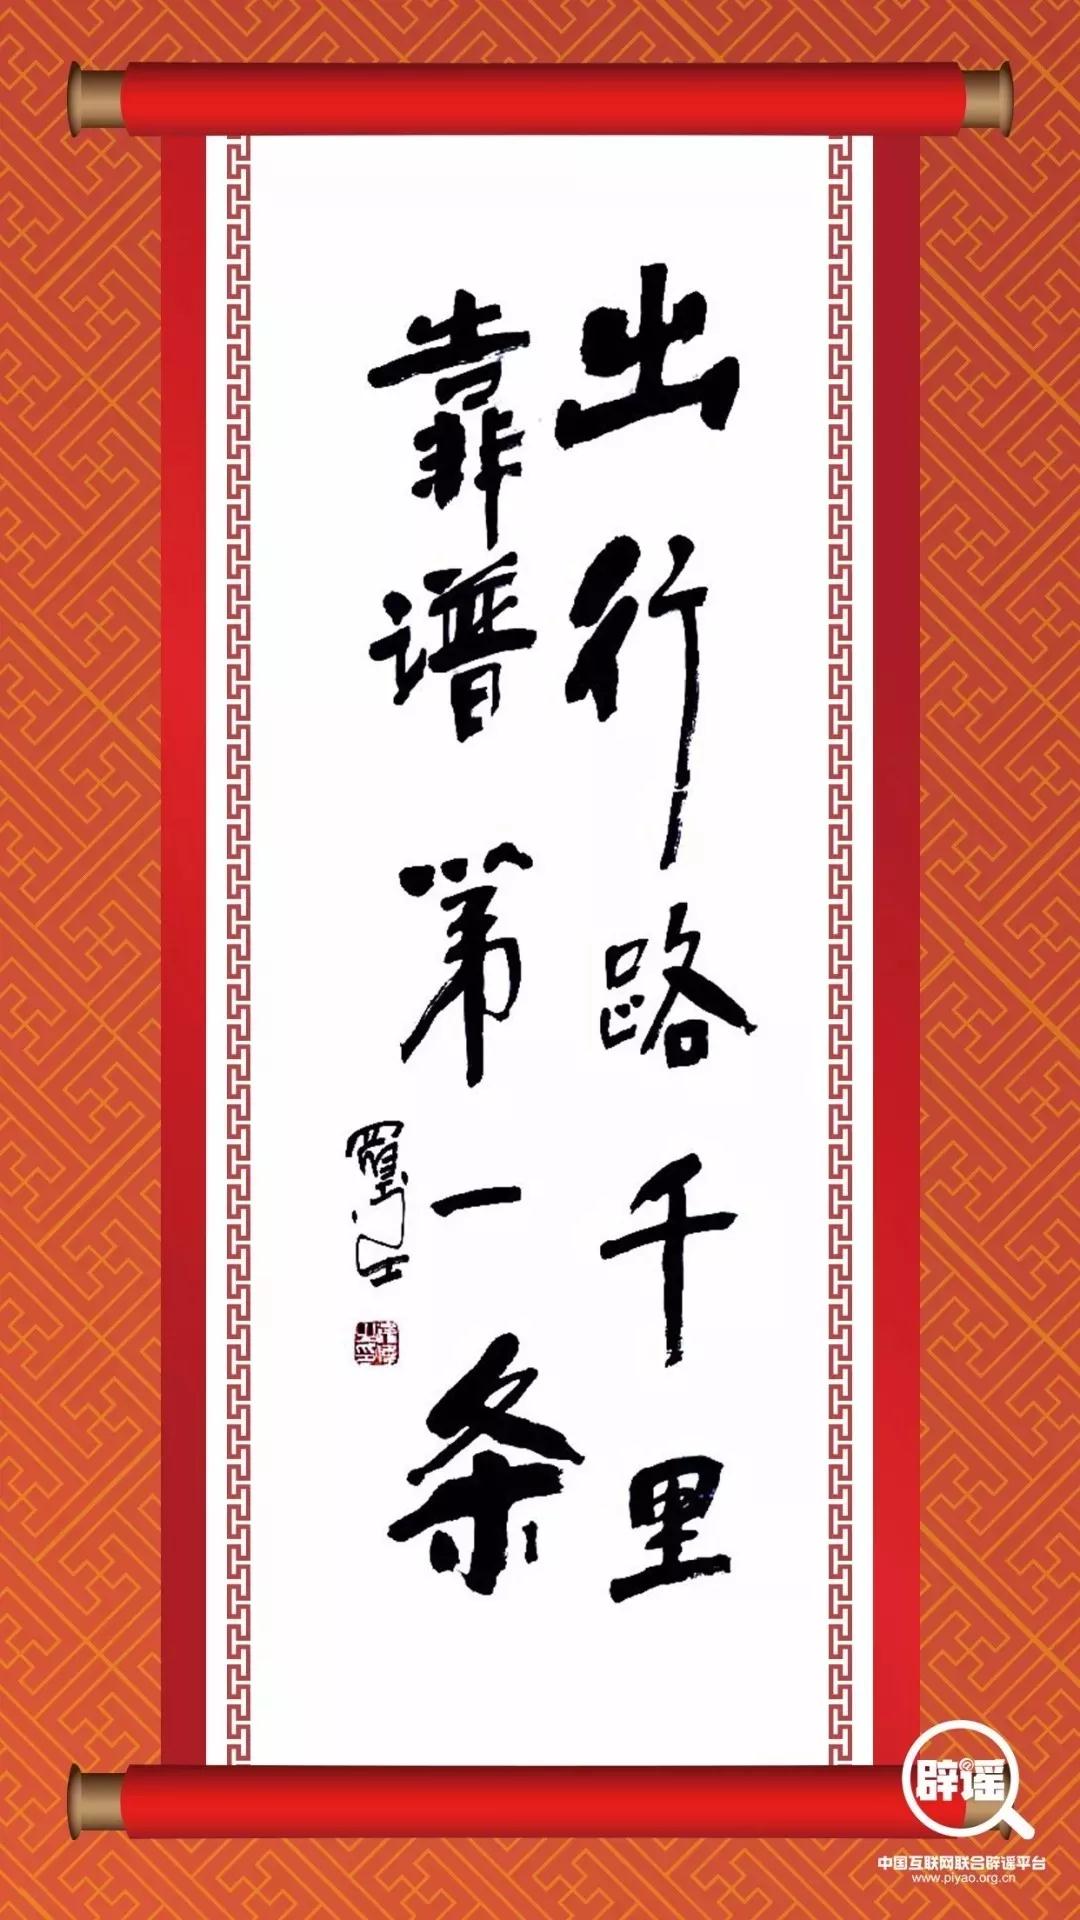 出行路千里
靠谱第一条
辟谣
中国互联网联合辟谣平台
www.piyao.org.cn